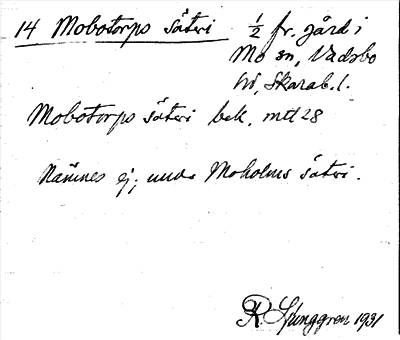 14 Mobotorps Säteri ½ fr. gård i
Mo sn, Vadsbo
hd, Skarab. l.
Mobotorps säteri bek. mtl 28
Nämnes ej; under Moholms säteri.
R. Ljunggren 1931